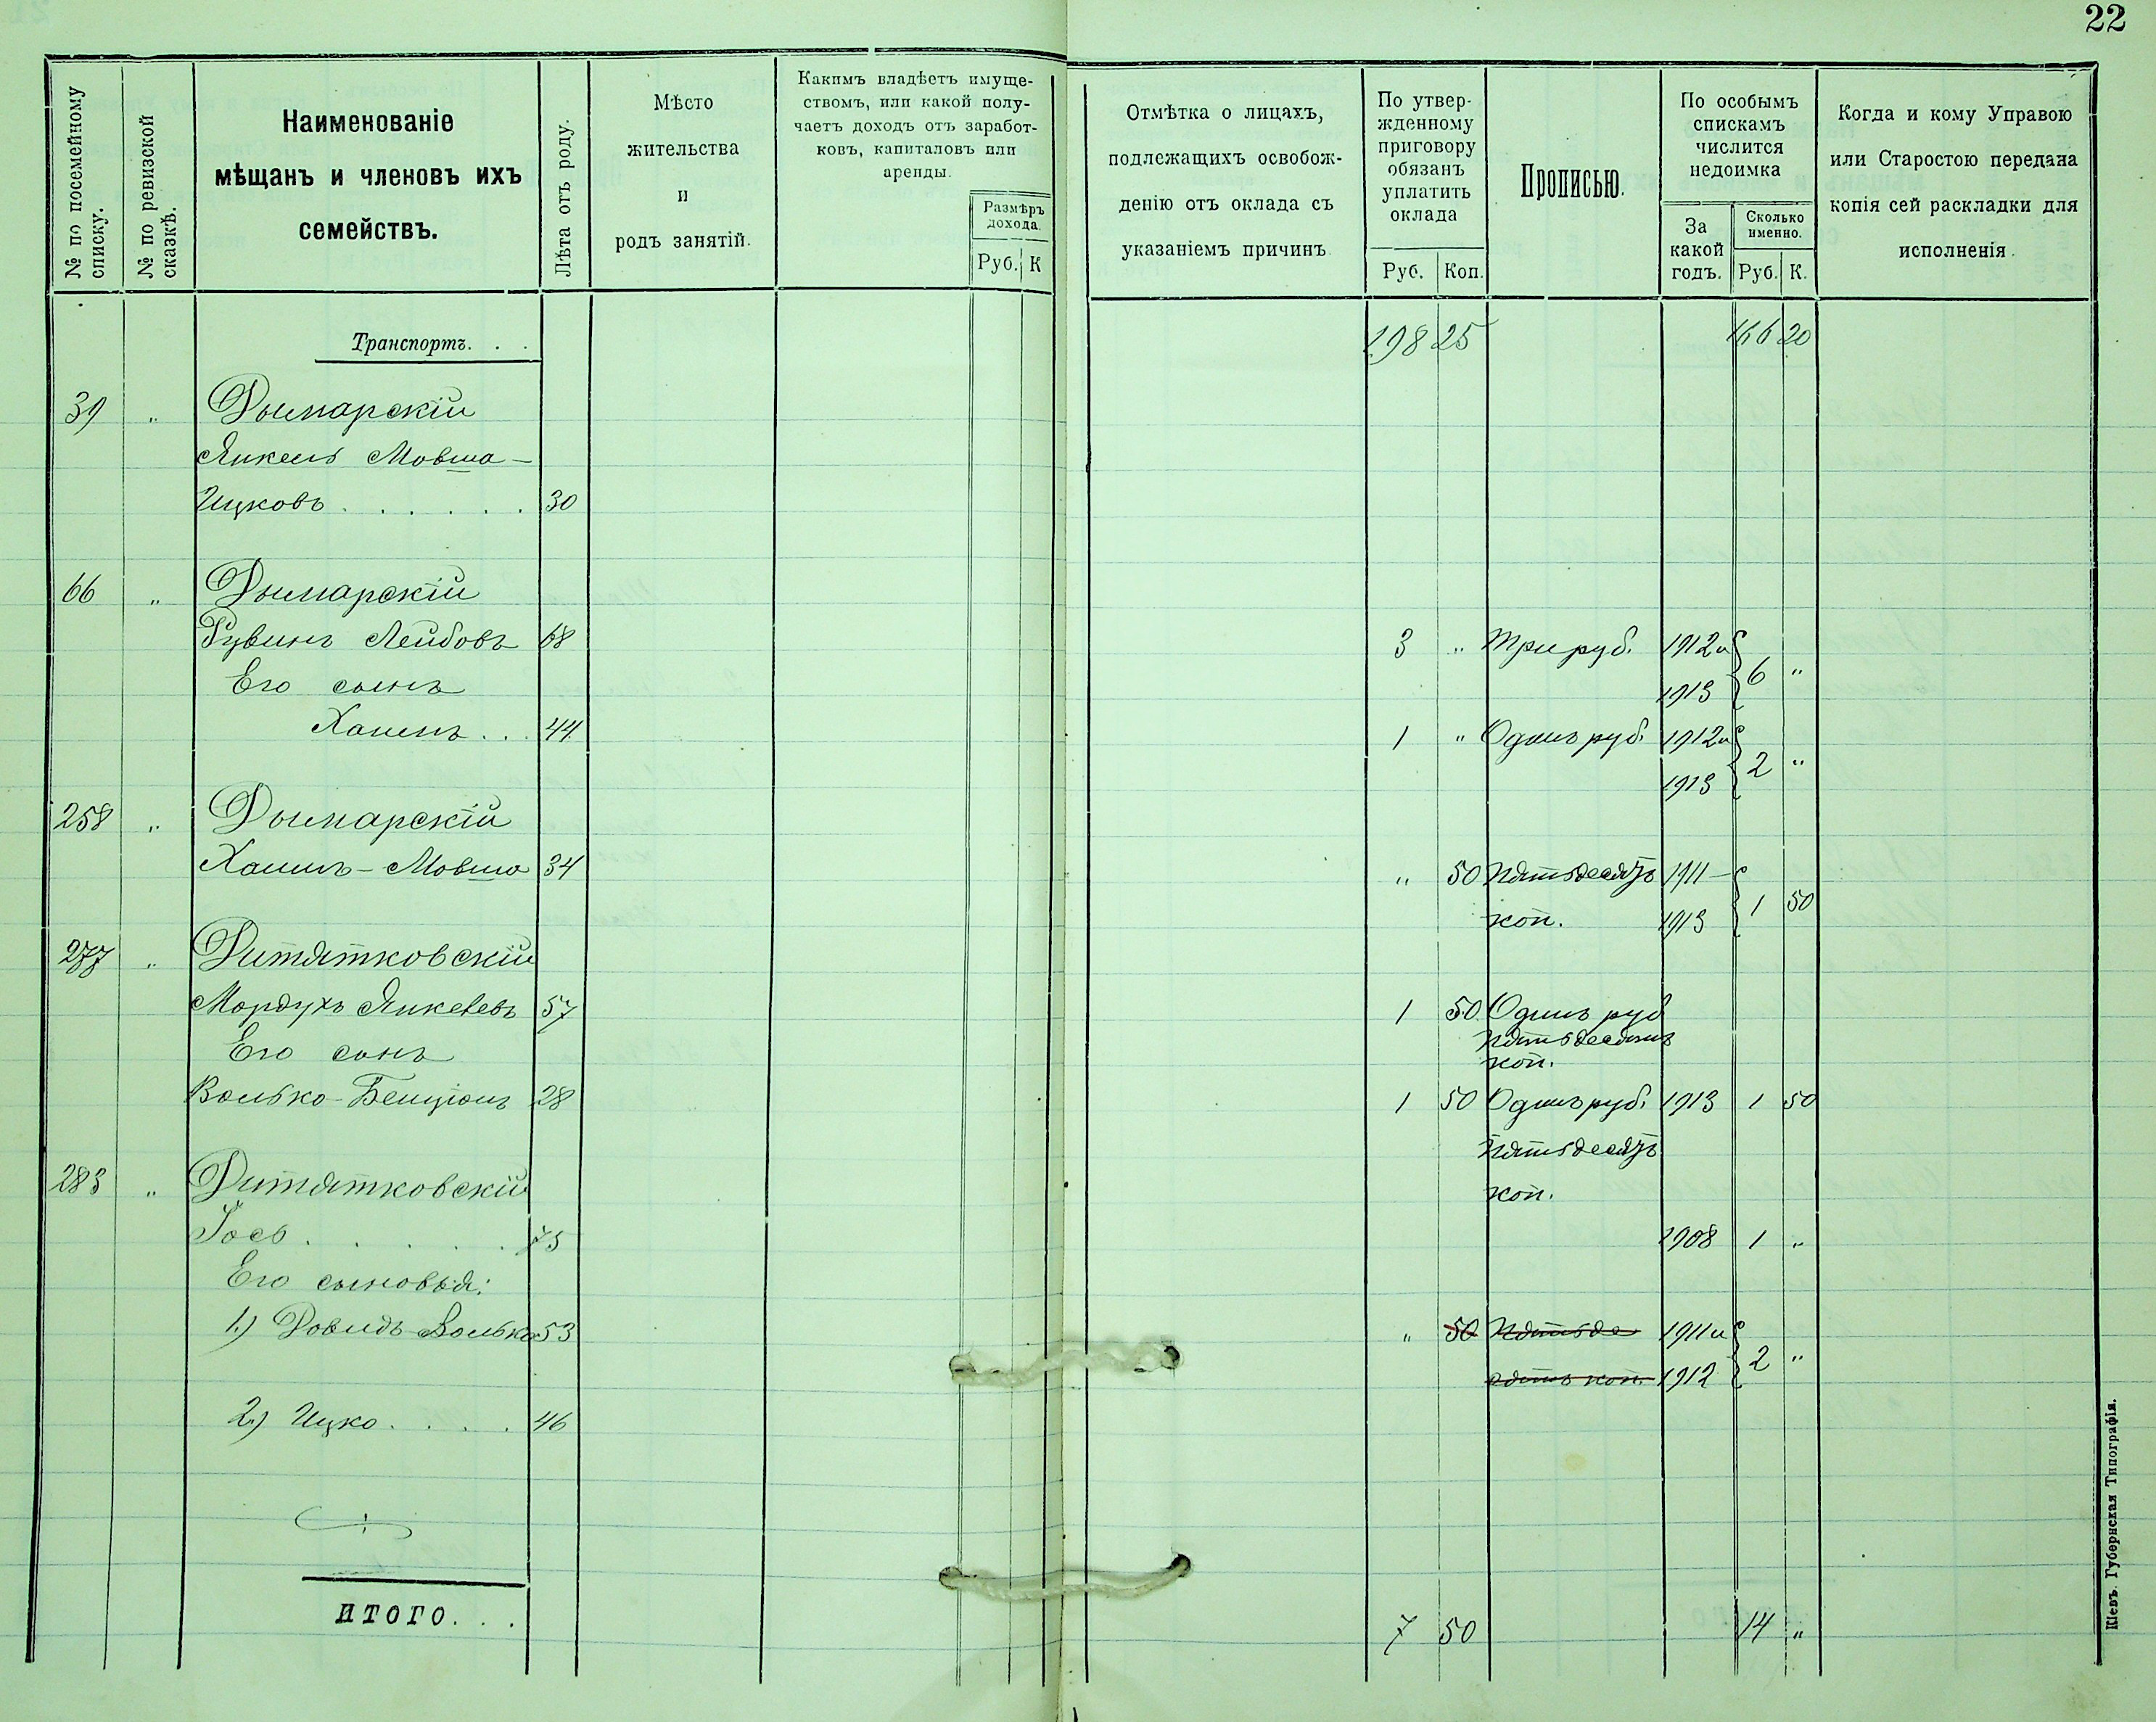 22
№ по посемейному списку.
№ по ревизской сказкѣ.
Наименованіе
мѣщанъ и членовъ ихъ
семействъ.
Лѣта отъ роду.
Мѣсто
жительства
и
родъ занятій.
Какимъ владѣетъ имуще-
ствомъ, или какой полу-
чаетъ доходъ отъ заработ-
ковъ, капиталовъ или
аренды.
Размѣръ
дохода.
Руб. К
Отмѣтка о лицахъ,
подлежащихъ освобож-
денію отъ оклада съ
указаніемъ причинъ
По утвер-
жденному
приговору
обязанъ
уплатить
оклада
Руб. Коп.
Прописью.
По особымъ
спискамъ
числится
недоимка
За
какой
годъ.
Сколько
именно.
Руб. К.
Когда и кому Управою
или Старостою передана
копія сей раскладки для
исполненія.
Транспортъ. . . 198 25 166 20
39 " Дымарскій
Янкель Мовша-
Ицковъ . . . . . . 30
66 " Дымарскій
Рувинъ Лейбовъ 68 3 " Три руб. 1912 и
Его сынъ 1913 6 "
Хаимъ . . . 44 1 " Одинъ руб. 1912 и
1913 2 "
258 " Дымарскій
Хаимъ-Мовша 34 " 50 Пятьдесятъ 1911-
коп. 1913 1 50
277 " Дитятковскій
Мордухъ Янкелевъ 57 1 50 Одинъ руб
Его сынъ пятьдесятъ
коп.
Волько-Бенціонъ 28 1 50 Одинъ руб. 1913 1 50
пятьдесятъ
283 " Дитятковскій коп.
Іось . . . . . 75 1908 1 "
Его сыновья:
1.) Довидъ-Волько 53 " 50 Пятьде 1911 и
сятъ коп. 1912 2 "
2.) Ицко . . . . 46
ИТОГО. . . 7 50 14 "
Кіевъ. Губернская Типографія.